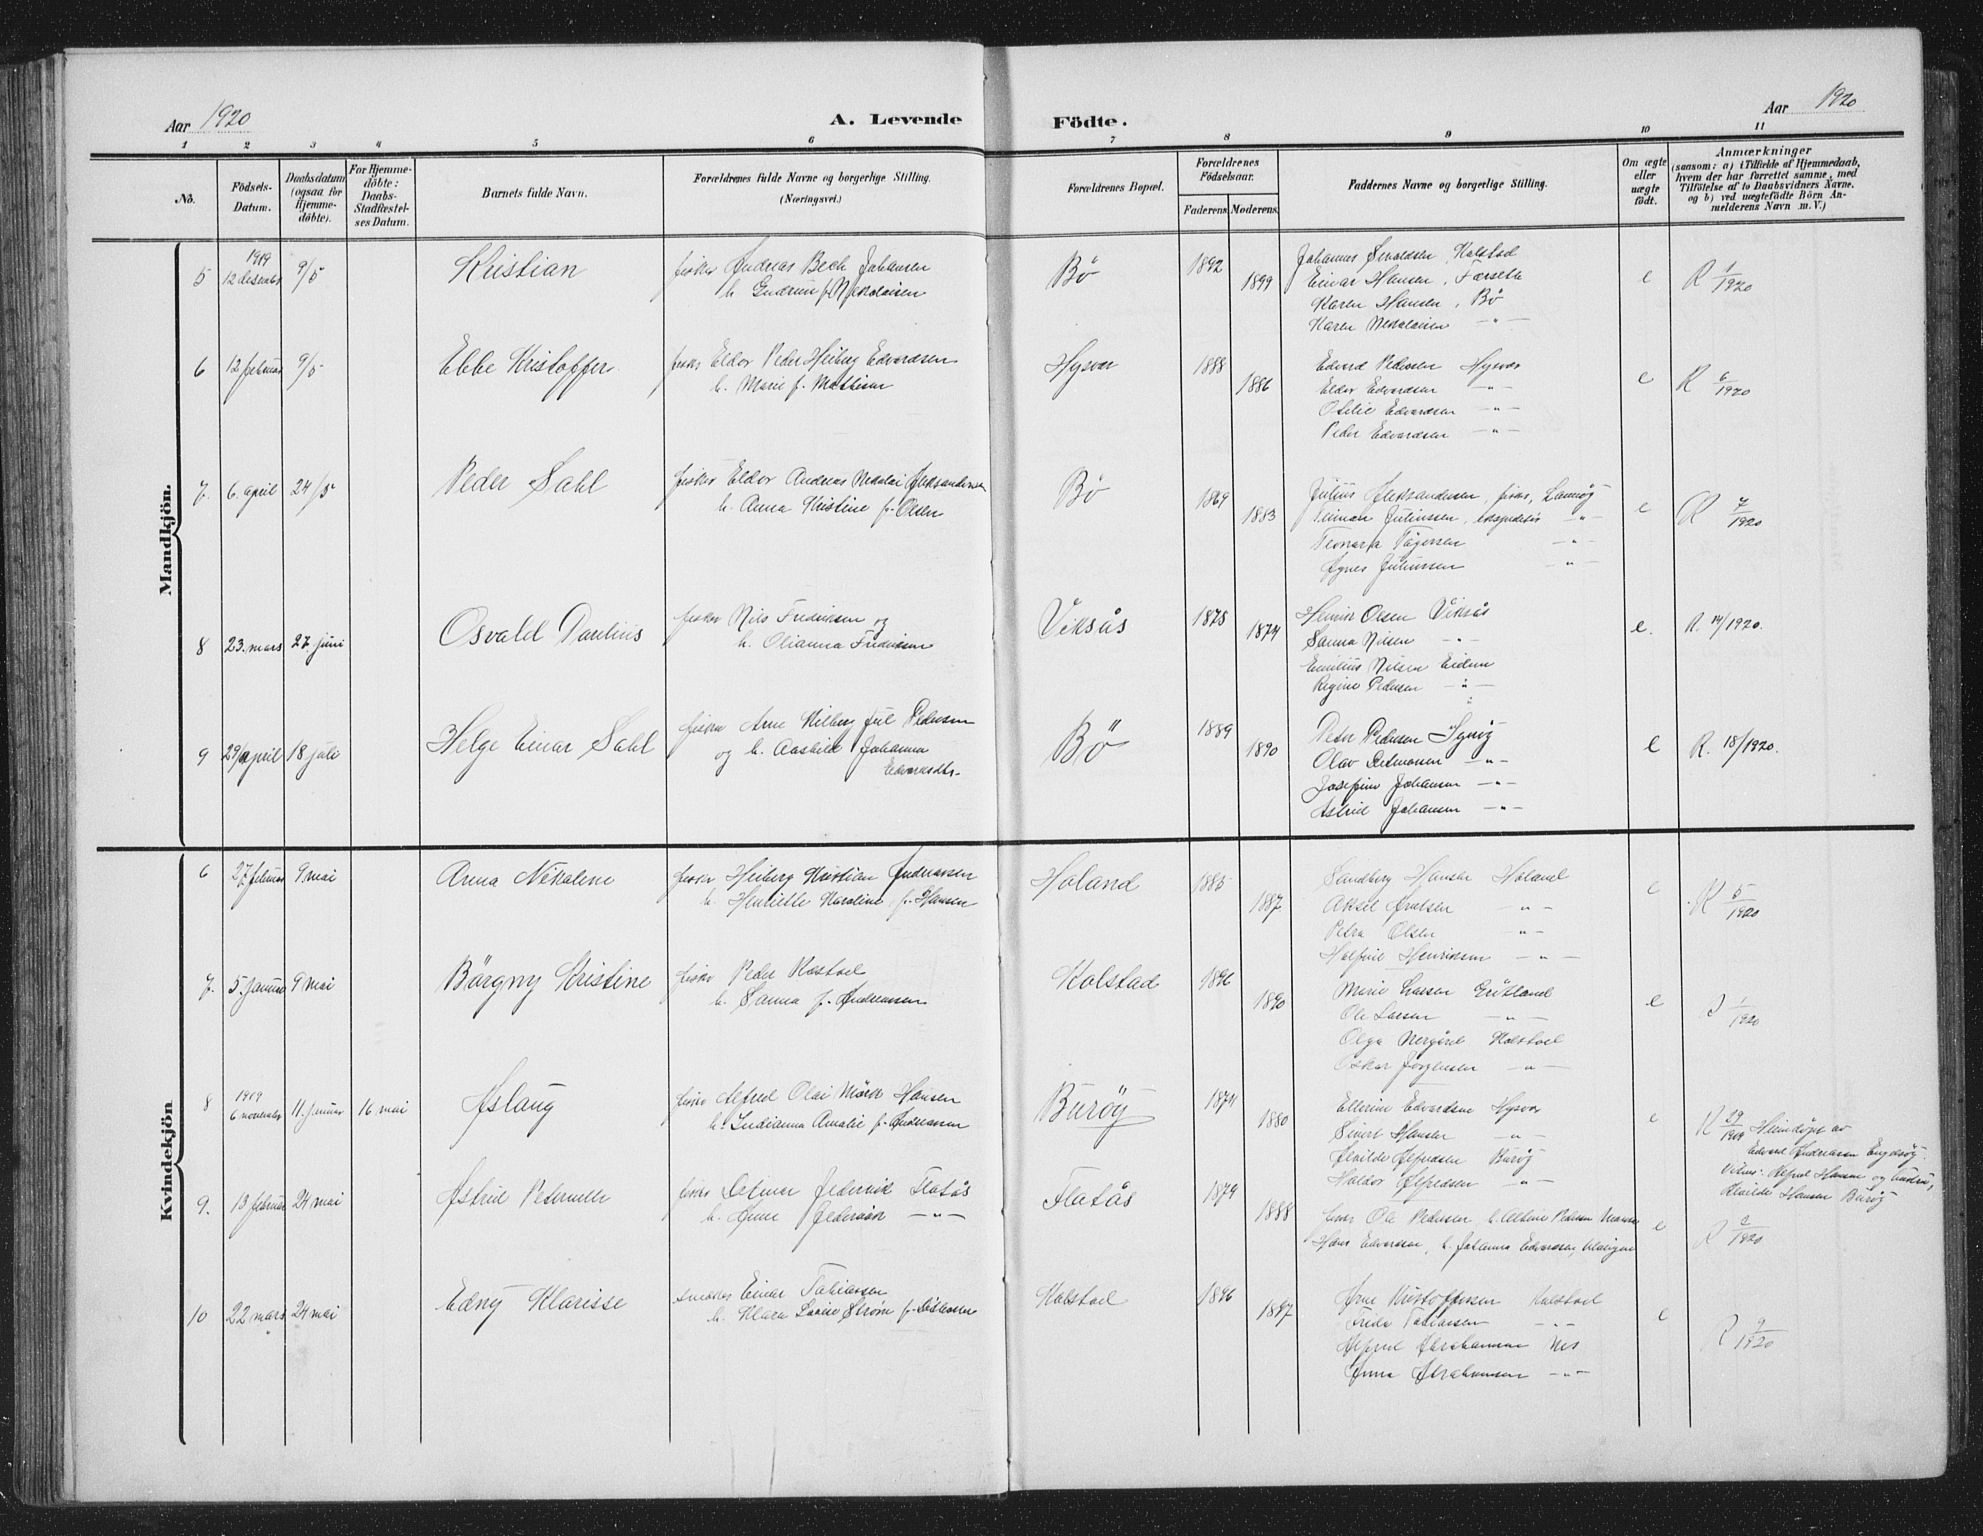 Aar 1920
A. Levende
Födte.
Aar 1920
1 2 3 4 5 6 7 8 9 10 11
No.
Födsels-Datum.
Daabsdatum (ogsaa for Hjemme-döbte).
For Hjemme-döbte: Daabs-Stadfæstel-ses Datum.
Barnets fulde Navn.
Forældrenes fulde Navne og borgerlige Stilling.
(Næringsvei.)
Forældrenes Bopæl.
Forældrenes Födselsaar.
Faderens. Moderens.
Faddernes Navne og borgerlige Stilling.
Om ægte eller uægte födt.
Anmærkninger
(saasom: a) i Tilfælde af Hjemmedaab, hvem der har forrettet samme, med Tilföielse af to Daabsvidners Navne. og b) ved uægtefödte Börn An-melderens Navn m. V.)
Mandkjön.
5 1919 12 desember 9/5 Kristian
fisker Andreas Bech Johansen
h. Gudrun f. Nikolaisen
Bö 1892 1899
Johannes Kolstad
Einar Hansen, Færseth
Karen Hansen, Bö
Karen Nikolaisen -"-
e R 1/1920
6 12 februar 9/5 Ebbe Kristoffer
fisker Eldor Peder Heiberg Edvardsen
h. Marie f. Mathisen
Hysvær 1888 1886
Edvard Pedersen Hysvær
Eldor Edvardsen -"-
Otelie Edvardsen -"-
Peder Edvardsen -"-
e R 6/1920
7. 6. april 24/5 Peder Sahl
fisker Eldor Andreas Nikolai Aleksandersen
h. Anna Kristine f. Olsen
Bö 1869 1883
Julius Aleksandersen, fisker,
Juliussen, ekspeditör -"-
-"-
Agnes Juliussen -"-
e R 7/1920
8 23. mars 27. juni Osvald Paulius
fisker Nils Fredriksen og
h. Olianna Fredriksen
Viksås 1875 1874
Henrik Olsen Viksås
Sanna Nilsen -"-
Emilius Nilsen Eidem
Regine Pedersen -"-
e. R. 14/1920.
9 29/april 18 juli Helge Einar Sahl
fisker Arne Hilberg Jul Pedersen
og h. Aashild Johanna
Edvardsdtr.
Bö 1889 1890
Peter Pedersen
Olav Detmansen -"-
Josefine Johansen -"-
Astrid Johansen -"-
e R. 18/1920.
Kvindekjön
6 27 februar 9 mai Anna Nikoline
fisker Heiberg Kristian Andreassen
h. Henriette Karoline f. Hansen
Holand 1885 1887
Sandberg Hansen Holand
Aksel Arntsen -"-
Petra Olsen -"-
Halfrid Henriksen -"-
e R 5/1920
7. 5. januar 9 mai Börgny Kristine
fisker Peder Kolstad
h. Sanna f. Andreassen
Kolstad 1896 1890
Marie Larsen Grötland
Ole Larsen -"-
Olga Nergård Kolstad
Oskar Jörgensen -"-
e 1/1920
8 1919 6 november 11. januar 16 mai Aslaug
fisker Alfred Olai Mörck Hansen
h. Indianna Amalie f. Andreassen
Buröy 1874 1880
Ellerine Edvardsen Hysvær
Sivert Hansen -"-
Alvilde Alfredsen Buröy
Haldor Alfredsen -"-
e R 29/1919 Hjemdöpt av
Edvard Andreassen
Vitner: Alfred Hansen og hustru,
Alvilde Hansen Buröy
9. 13 februar 24 mai Astrid Peternelle
fisker Detmer Frederik Flatås
h. Anne Frederikke -"-
Flatås 1879 1888
fisker Ole Pedersen, h. Albine Pedersen
Hans Edvardsen, h. Johanna Edvardsen,
e R 2/1920
10 22 mars 24 mai Edny Klarisse
snekker Einar Tobiassen
h. Klara Lovise Ström f.
Kolstad 1896 1897
Arne Kristoffersen Kolstad
Frida Tobiassen -"-
Alfred Abrahamsen Nes
Anna Abrahamsen -"-
e R 9/1920